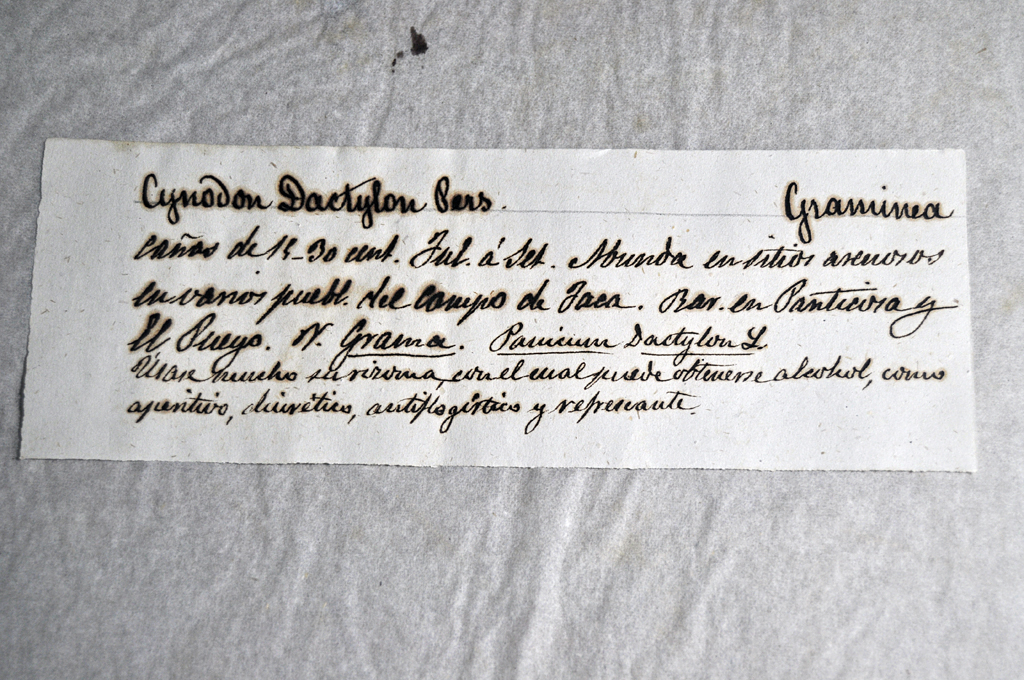 Cynodon Dactylon Pers. Graminea
cañas de 15-30 cent. Jul. á Set. Abunda en sitios arenosos
en varios puebl. del campo de Jaca. Rar. en Panticosa y
El Pueyo. N. Grama. Panicum Dactylon L.
Úsase mucho su rizoma, con el cual puede obtenerse alcohol, como
aperitivo, diurético, antiflogístico y refrescante.